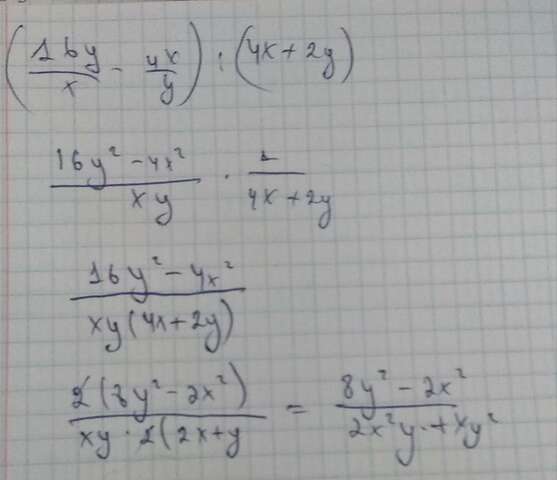 (16y/x - 4x/y) : (4x + 2y)
16y² - 4x² / xy · 1 / 4x + 2y
16y² - 4x² / xy(4x + 2y)
2(8y² - 2x²) / xy · 2(2x + y = 8y² - 2x² / 2x²y + xy²